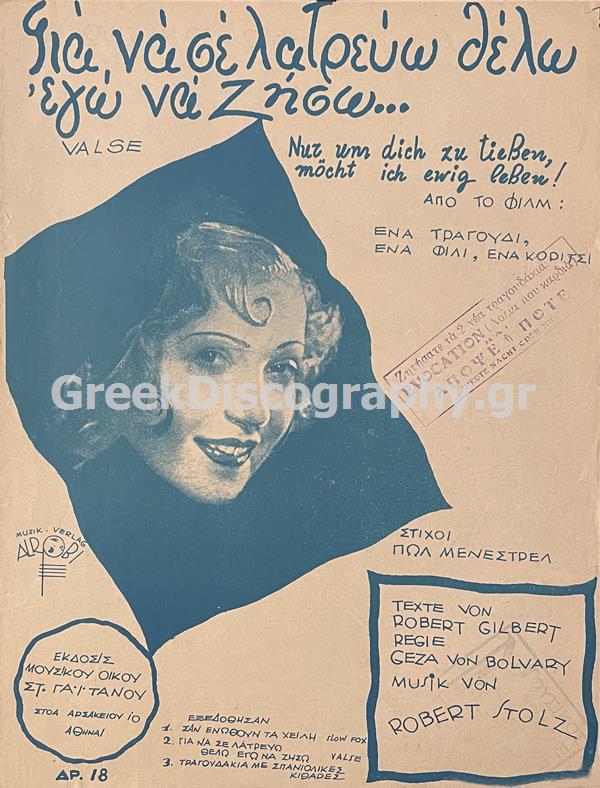 Γιά νά σέ λατρεύω θέλω
ἐγώ νά ζήσω...
VALSE
Nur um dich zu lieben,
möcht ich ewig leben!
ΑΠΟ ΤΟ ΦΙΛΜ:
ΕΝΑ ΤΡΑΓΟΥΔΙ,
ΕΝΑ ΦΙΛΙ, ΕΝΑ ΚΟΡΙΤΣΙ
Ζητήσατε τά 2 νέα τραγουδάκια
EVOCATION (Λόλα μου καρδιά)
"Α,
ΑΠΟΨΕ ἤ ΠΟΤΕ
HEUTE NACHT ODER
GreekDiscography.gr
MUSIK-VERLAG
ALROBI
ΣΤΙΧΟΙ
ΠΩΛ ΜΕΝΕΣΤΡΕΛ
TEXTE VON
ROBERT GILBERT
REGIE
GEZA VON BOLVARY
MUSIK VON
ROBERT STOLZ
ΕΚΔΟΣΙΣ
ΜΟΥΣΙΚΟΥ ΟΙΚΟΥ
ΣΤ. ΓΑ·Ι·ΤΑΝΟΥ
ΣΤΟΑ ΑΡΣΑΚΕΙΟΥ 10
ΑΘΗΝΑΙ
ΕΞΕΔΟΘΗΣΑΝ
1. ΣΑΝ ΕΝΩΘΟΥΝ ΤΑ ΧΕΙΛΗ SLOW FOX
2. ΓΙΑ ΝΑ ΣΕ ΛΑΤΡΕΥΩ
ΘΕΛΩ ΕΓΩ ΝΑ ΖΗΣΩ VALSE
3. ΤΡΑΓΟΥΔΑΚΙΑ ΜΕ ΣΠΑΝΙΟΛΙΚΕΣ
ΚΙΘΑΡΕΣ
ΔΡ. 18